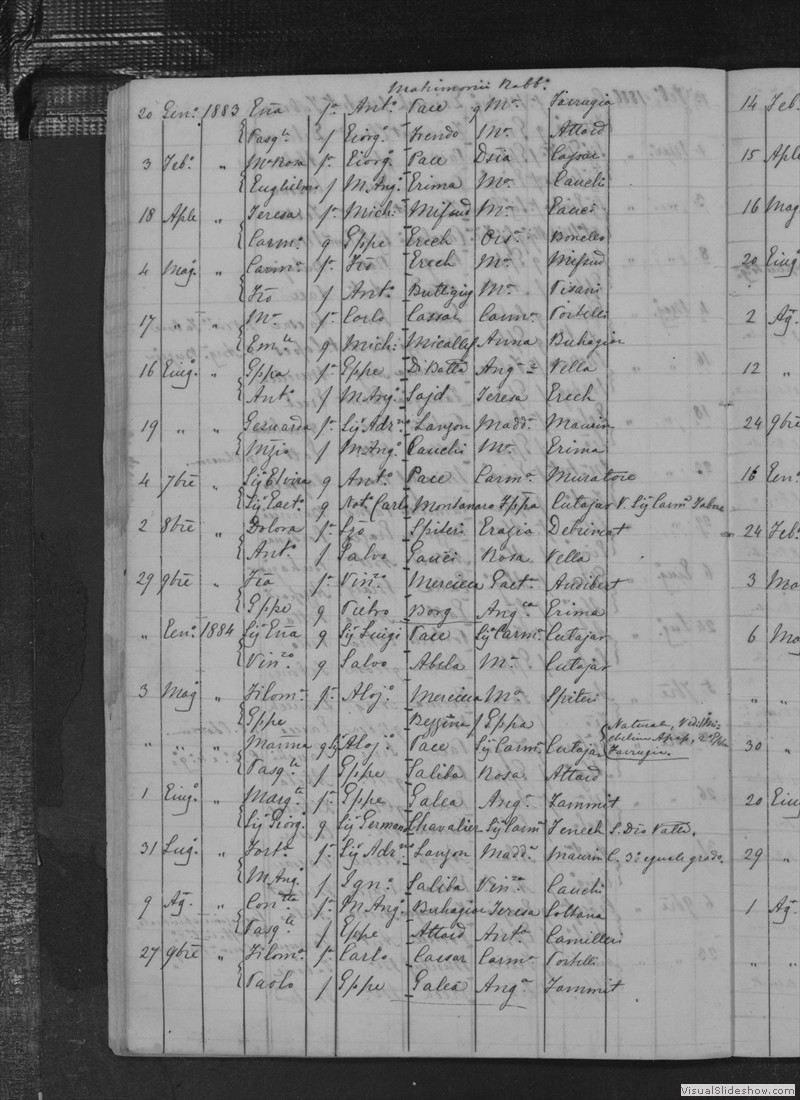 Matrimonii Rabb.º
20 Gen.º 1883 Gña f. Ant.º Pace q M.ª Farrugia 14 Feb.
Pasq.le f Giorg.º Trendo M.ª Attard
3 Feb.º „ M.ª Rosa f. Giorg.º Pace Dsia Cassar 15 Aple
Guglielmo f M. Ang.º Grima M.ª Cauchi
18 Aple „ Teresa f. Mich. Mifsud M.ª Gauci 16 Mag
Carm.º q Gppe Grech Ors.ª Bonello
4 Mag. „ Carm.ª f. Fcõ Grech M.ª Mifsud 20 Giug
Fcõ f Ant.º Buttigieg M.ª Pisani
17 „ „ M.ª f. Carlo Cassar Carm.ª Portelli 2 Ag.
Em.le q Mich. Micallef Anna Buhagiar
16 Giug. „ Gppa f. Gppe Di Batta Ang.ª Vella 12 „
Ant.º f M. Ang. Said Teresa Grech
19 „ „ Gesuarda f. Sig Adr.no Lanzon Madd.ª Maurin 24 9bre
Nzio f M. Ang.º Cauchi M.ª Grima
4 7bre „ Sig Elvira q Ant.º Pace Carm.ª Muratore 16 Gen.º
Sig. Gaet.º q Not. Carlo Montanaro Gppa Cutajar V. Sig Carm.ª Fabre
2 8bre „ Dolora f. Lzo Spiteri Grazia Debrincat 24 Feb.º
Ant.º f Salvo Gauci Rosa Vella
29 9bre „ Fca f. Vin.zo Mercieca Gaet.ª Audibert 3 Ma
Gppe q Pietro Borg Ang.ca Grima
„ Gen.º 1884 Sig.ª Gña q Sig Luigi Pace Sig.ª Carm.ª Cutajar 6 Ma
Vin.zo q Salvo Abela M.ª Cutajar
3 Mag „ Filom.ª f. Aloj.º Mercieca M.ª Spiteri „ „
Gppe Bezzina f Gppa Naturale, Vedi
„ „ „ Marina q Sig Aloj.º Pace Sig Carm.ª Cutajar Farrugia. 30 „
Pasq.le f Gppe Saliba Rosa Attard
1 Giug.º „ Marg.ta f. Gppe Galea Ang.ª Zammit 20 Giug
Sig Giorg.º q Sig Germano Chavalier Sig Carm.ª Fenech
31 Lug.º „ Fort.ª f. Sig Adr.no Lanzon Madd.ª Maurin C. 3º eguale grado. 29 „
M. Ang.º f Ign.º Saliba Vin.za Cauchi
9 Ag. „ Con.tta f. M. Ang.º Buhagiar Teresa Soltana 1 Ag.
Pasq.le f Gppe Attard Ant.ª Camilleri
27 9bre „ Filom.ª f. Carlo Cassar Carm.ª Portelli „ „
Paolo f Gppe Galea Ang.ª Zammit
VisualSlideshow.com